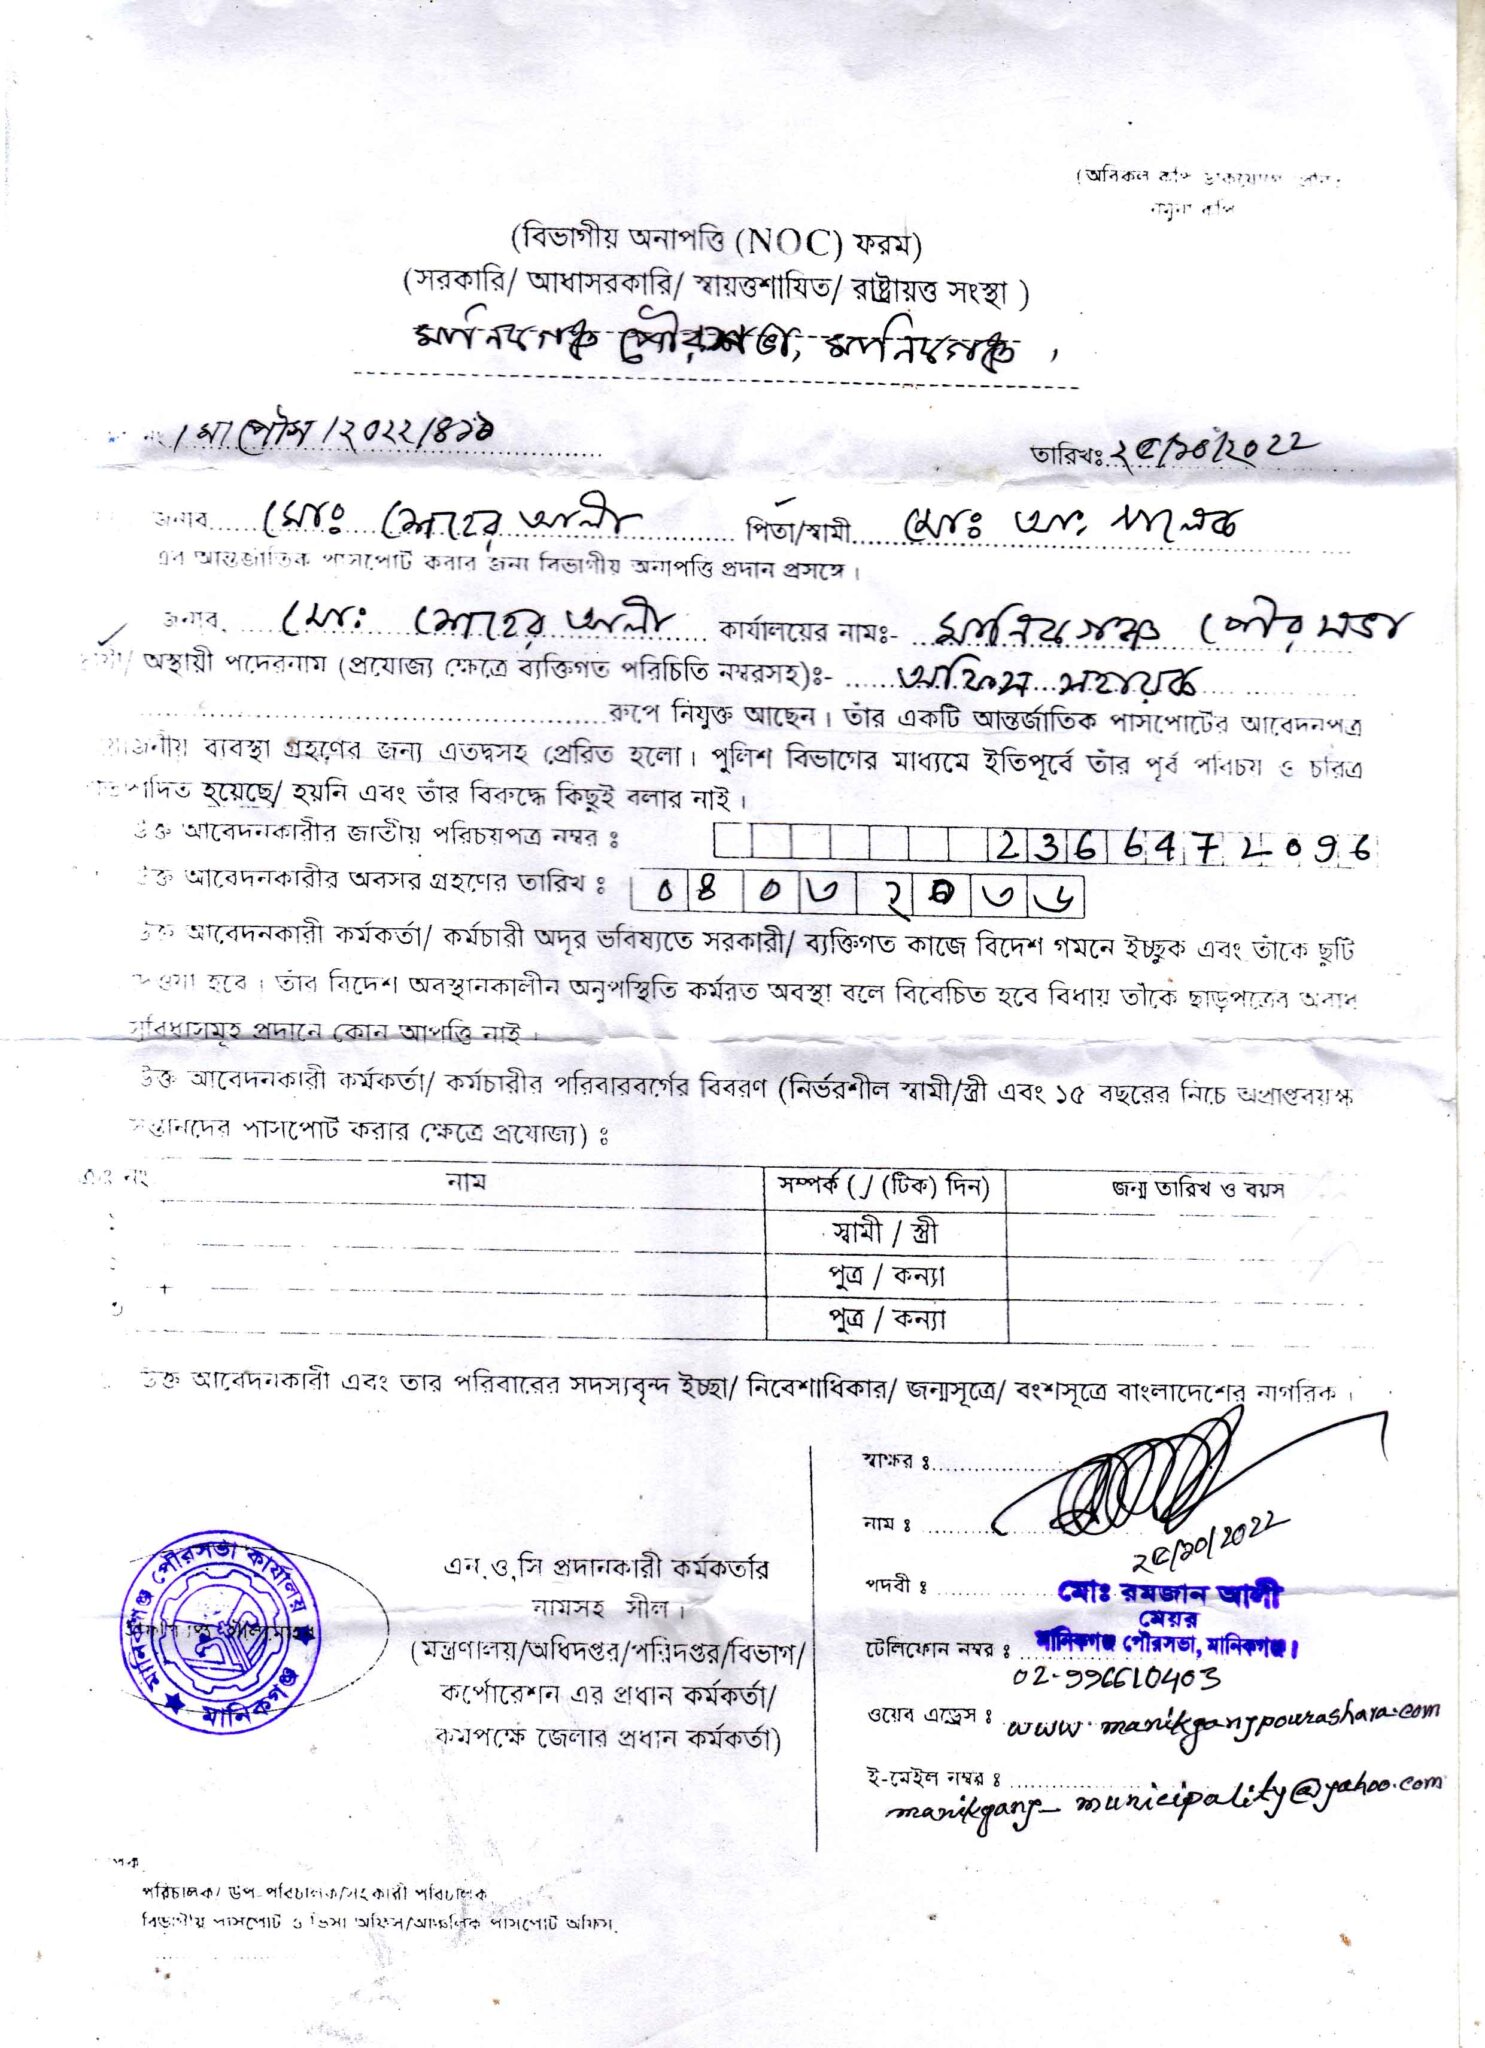 (অবিকল কপি
নমুনা কপি
(বিভাগীয় অনাপত্তি (NOC) ফরম)
(সরকারি/ আধাসরকারি/ স্বায়ত্তশাযিত/ রাষ্ট্রায়ত্ত সংস্থা )
মানিকগঞ্জ পৌরসভা, মানিকগঞ্জ ।
নং /মা পৌস /২০২২/৪১১
তারিখঃ ২৫/১০/২০২২
জনাব মোঃ মেহের আলী পিতা/স্বামী মোঃ আঃ মালেক
এর আন্তর্জাতিক পাসপোর্ট করার জন্য বিভাগীয় অনাপত্তি প্রদান প্রসঙ্গে ।
জনাব মোঃ মেহের আলী কার্যালয়ের নামঃ- মানিকগঞ্জ পৌরসভা
অস্থায়ী পদেরনাম (প্রযোজ্য ক্ষেত্রে ব্যক্তিগত পরিচিতি নম্বরসহ)ঃ- অফিস সহায়ক
রুপে নিযুক্ত আছেন । তাঁর একটি আন্তর্জাতিক পাসপোর্টের আবেদনপত্র
ব্যবস্থা গ্রহণের জন্য এতদ্বসহ প্রেরিত হলো । পুলিশ বিভাগের মাধ্যমে ইতিপূর্বে তাঁর পূর্ব পরিচয় ও চরিত্র
হয়েছে/ হয়নি এবং তাঁর বিরুদ্ধে কিছুই বলার নাই ।
উক্ত আবেদনকারীর জাতীয় পরিচয়পত্র নম্বর ঃ 2366472096
উক্ত আবেদনকারীর অবসর গ্রহণের তারিখ ঃ ০৪০৩২০৩৬
উক্ত আবেদনকারী কর্মকর্তা/ কর্মচারী অদূর ভবিষ্যতে সরকারী/ ব্যক্তিগত কাজে বিদেশ গমনে ইচ্ছুক এবং তাঁকে ছুটি
দেওয়া হবে । তাঁর বিদেশ অবস্থানকালীন অনুপস্থিতি কর্মরত অবস্থা বলে বিবেচিত হবে বিধায় তাঁকে ছাড়পত্রের অবাধ
সুবিধাসমূহ প্রদানে কোন আপত্তি নাই ।
উক্ত আবেদনকারী কর্মকর্তা/ কর্মচারীর পরিবারবর্গের বিবরণ (নির্ভরশীল স্বামী/স্ত্রী এবং ১৫ বছরের নিচে অপ্রাপ্তবয়স্ক
সন্তানদের পাসপোর্ট করার ক্ষেত্রে প্রযোজ্য) ঃ
নং নাম সম্পর্ক (√ (টিক) দিন) জন্ম তারিখ ও বয়স
স্বামী / স্ত্রী
পুত্র / কন্যা
পুত্র / কন্যা
উক্ত আবেদনকারী এবং তার পরিবারের সদস্যবৃন্দ ইচ্ছা/ নিবেশাধিকার/ জন্মসূত্রে/ বংশসূত্রে বাংলাদেশের নাগরিক ।
স্বাক্ষর ঃ
নাম ঃ
২৫/১০/২০২২
মানিকগঞ্জ পৌরসভা কার্যালয়
মানিকগঞ্জ
এন.ও.সি প্রদানকারী কর্মকর্তার
নামসহ সীল ।
(মন্ত্রণালয়/অধিদপ্তর/পরিদপ্তর/বিভাগ/
কর্পোরেশন এর প্রধান কর্মকর্তা/
কমপক্ষে জেলার প্রধান কর্মকর্তা)
পদবী ঃ মোঃ রমজান আলী
মেয়র
টেলিফোন নম্বর ঃ মানিকগঞ্জ পৌরসভা, মানিকগঞ্জ।
02-996610403
ওয়েব এড্রেস ঃ www.manikganjpourashava.com
ই-মেইল নম্বর ঃ
manikganj_municipality@yahoo.com
পরিচালক/ উপ-পরিচালক/সহকারী পরিচালক
বিভাগীয় পাসপোর্ট ও ভিসা অফিস/আঞ্চলিক পাসপোর্ট অফিস,